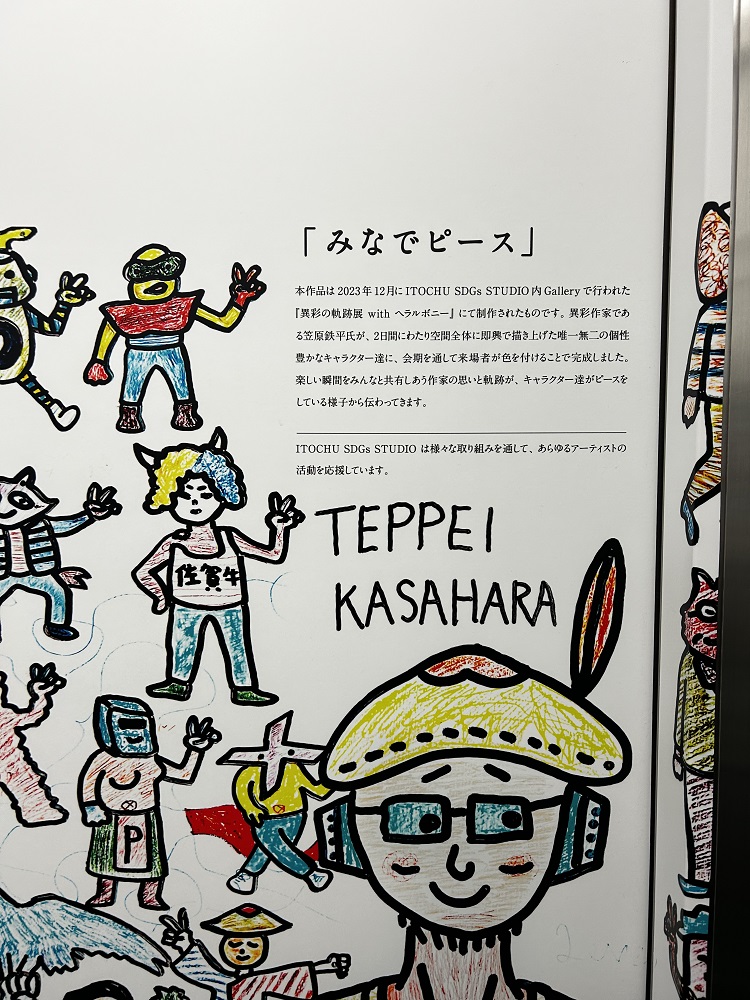 「みなでピース」
本作品は2023年12月にITOCHU SDGs STUDIO内Galleryで行われた
『異彩の軌跡展 with ヘラルボニー』にて制作されたものです。異彩作家であ
る笠原鉄平氏が、2日間にわたり空間全体に即興で描き上げた唯一無二の個性
豊かなキャラクター達に、会期を通して来場者が色を付けることで完成しました。
楽しい瞬間をみんなと共有しあう作家の思いと軌跡が、キャラクター達がピースを
している様子から伝わってきます。
ITOCHU SDGs STUDIO は様々な取り組みを通して、あらゆるアーティストの
活動を応援しています。
TEPPEI
KASAHARA
佐賀牛
P